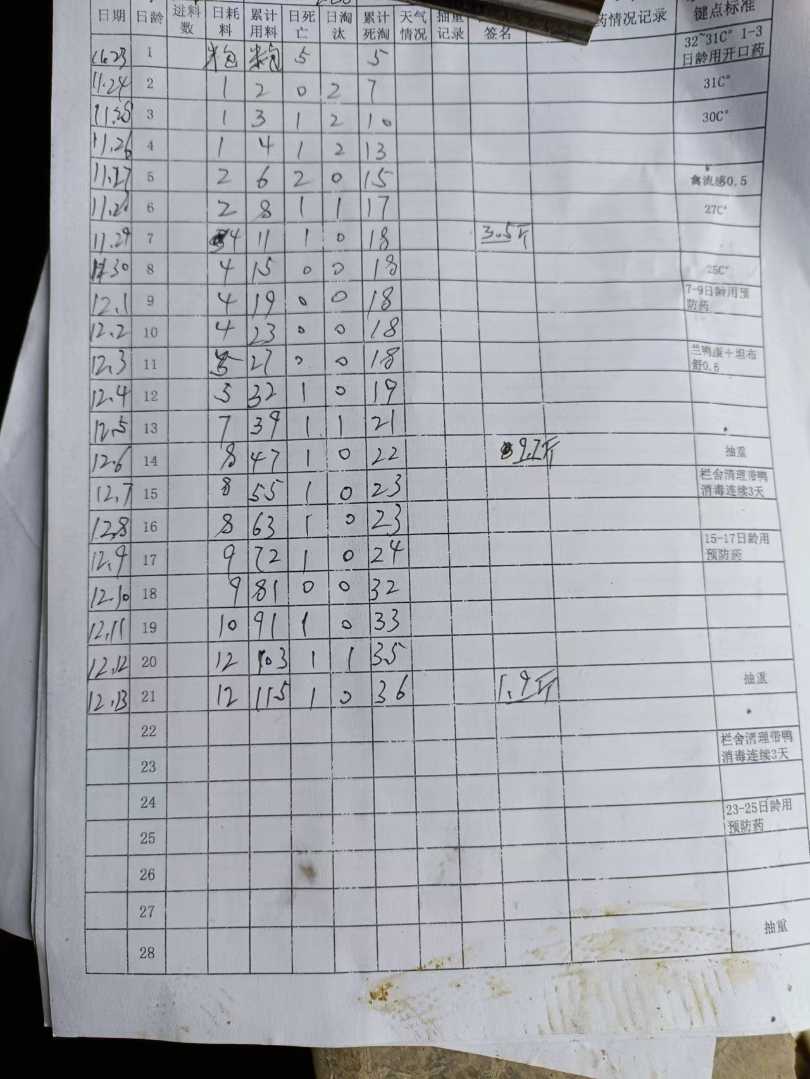 日期 日龄 进料数 日耗料 累计用料 日死亡 日淘汰 累计死淘 天气情况 抽重记录 签名 药情况记录 键点标准
11.23 1 5 5 32~31C° 1-3日龄用开口药
11.24 2 1 2 0 2 7 31C°
11.25 3 1 3 1 2 10 30C°
11.26 4 1 4 1 2 13
11.27 5 2 6 2 0 15 禽流感0.5
11.28 6 2 8 1 1 17 27C°
11.29 7 4 11 1 0 18 3.5斤
11.30 8 4 15 0 0 18 25C°
12.1 9 4 19 0 0 18 7-9日龄用预防药
12.2 10 4 23 0 0 18
12.3 11 5 27 0 0 18
12.4 12 5 32 1 0 19
12.5 13 7 39 1 1 21
12.6 14 8 47 1 0 22 抽重
12.7 15 8 55 1 0 23 栏舍清理带鸭消毒连续3天
12.8 16 8 63 1 0 23
12.9 17 9 72 1 0 24 15-17日龄用预防药
12.10 18 9 81 0 0 32
12.11 19 10 91 1 0 33
12.12 20 12 103 1 1 35
12.13 21 12 115 1 0 36 1.9斤 抽重
22
23 栏舍清理带鸭消毒连续3天
24
25 23-25日龄用预防药
26
27
28 抽重